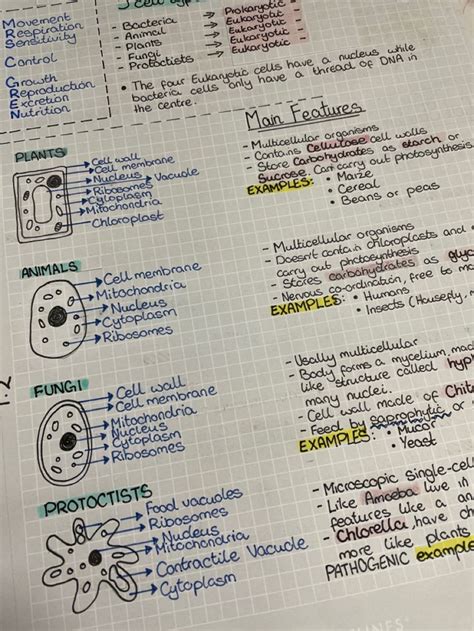 5 cell typ
Movement
Respiration
Sensitivity
Control
Growth
Reproduction
Excretion
Nutrition
- Bacteria → Prokaryotic -
- Animal → Eukaryotic -
- Plants → Eukaryotic -
- Fungi → Eukaryotic -
- Protoctists → Eukaryotic -
• The four Eukaryotic cells have a nucleus while
bacteria cells only have a thread of DNA in
the centre.
Main Features
PLANTS
Cell wall
Cell membrane
Nucleus
Vacuole
Ribosomes
Cytoplasm
Mitochondria
Chloroplast
- Multicellular organisms
- Contains Cellulose cell walls
- Store Carbohydrates as starch or
Sucrose. Can carry out photosynthesis
EXAMPLES: • Maize
• Cereal
• Beans or peas
ANIMALS
Cell membrane
Mitochondria
Nucleus
Cytoplasm
Ribosomes
- Multicellular organisms
- Doesn't contain chloroplasts and
carry out photosynthesis
- Stores carbohydrates as glyc
- Nervous co-ordination, free to mo
EXAMPLES: • Humans
• Insects (Housefly, m
1.2
FUNGI
Cell wall
Cell membrane
Mitochondria
Nucleus
Cytoplasm
Ribosomes
- Usally multicellular
- Body forms a mycelium, mad
like structure called hyp
many nuclei.
- Cell wall made of Chit
- Feed by saprophytic or
EXAMPLES: • Mucor
• Yeast
PROTOCTISTS
Food vacuoles
Ribosomes
Nucleus
Mitochondria
Contractile Vacuole
Cytoplasm
- Microscopic single-cel
- Like Amoeba live in
features like a an
- Chlorella, have ch
more like plants
PATHOGENIC example